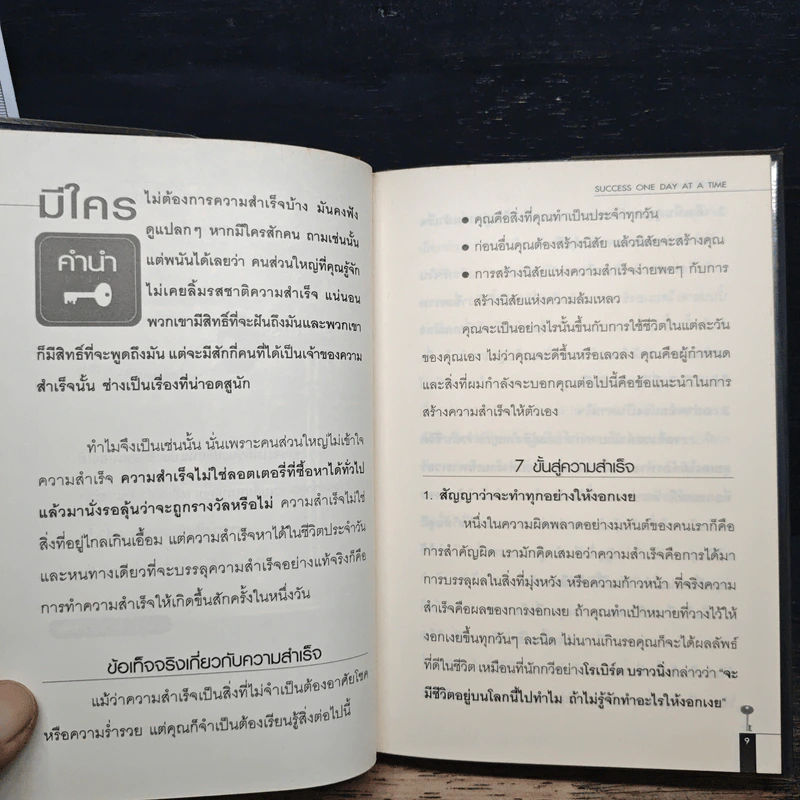 มีใคร ไม่ต้องการความสำเร็จบ้าง มันคงฟัง
ดูแปลกๆ หากมีใครสักคน ถามเช่นนั้น
คำนำ
แต่พนันได้เลยว่า คนส่วนใหญ่ที่คุณรู้จัก
ไม่เคยลิ้มรสชาติความสำเร็จ แน่นอน
พวกเขามีสิทธิ์ที่จะฝันถึงมันและพวกเขา
ก็มีสิทธิ์ที่จะพูดถึงมัน แต่จะมีสักกี่คนที่ได้เป็นเจ้าของความ
สำเร็จนั้น ช่างเป็นเรื่องที่น่าอดสูนัก
ทำไมจึงเป็นเช่นนั้น นั่นเพราะคนส่วนใหญ่ไม่เข้าใจ
ความสำเร็จ ความสำเร็จไม่ใช่ลอตเตอรี่ที่ซื้อหาได้ทั่วไป
แล้วมานั่งรอลุ้นว่าจะถูกรางวัลหรือไม่ ความสำเร็จไม่ใช่
สิ่งที่อยู่ไกลเกินเอื้อม แต่ความสำเร็จหาได้ในชีวิตประจำวัน
และหนทางเดียวที่จะบรรลุความสำเร็จอย่างแท้จริงก็คือ
การทำความสำเร็จให้เกิดขึ้นสักครั้งในหนึ่งวัน
ข้อเท็จจริงเกี่ยวกับความสำเร็จ
แม้ว่าความสำเร็จเป็นสิ่งที่ไม่จำเป็นต้องอาศัยโชค
หรือความร่ำรวย แต่คุณก็จำเป็นต้องเรียนรู้สิ่งต่อไปนี้
SUCCESS ONE DAY AT A TIME
● คุณคือสิ่งที่คุณทำเป็นประจำทุกวัน
● ก่อนอื่นคุณต้องสร้างนิสัย แล้วนิสัยจะสร้างคุณ
● การสร้างนิสัยแห่งความสำเร็จง่ายพอๆ กับการ
สร้างนิสัยแห่งความล้มเหลว
คุณจะเป็นอย่างไรนั้นขึ้นกับการใช้ชีวิตในแต่ละวัน
ของคุณเอง ไม่ว่าคุณจะดีขึ้นหรือเลวลง คุณคือผู้กำหนด
และสิ่งที่ผมกำลังจะบอกคุณต่อไปนี้คือข้อแนะนำในการ
สร้างความสำเร็จให้ตัวเอง
7 ขั้นสู่ความสำเร็จ
1. สัญญาว่าจะทำทุกอย่างให้งอกเงย
หนึ่งในความผิดพลาดอย่างมหันต์ของคนเราก็คือ
การสำคัญผิด เรามักคิดเสมอว่าความสำเร็จคือการได้มา
การบรรลุผลในสิ่งที่มุ่งหวัง หรือความก้าวหน้า ที่จริงความ
สำเร็จคือผลของการงอกเงย ถ้าคุณทำเป้าหมายที่วางไว้ให้
งอกเงยขึ้นทุกวันๆ ละนิด ไม่นานเกินรอคุณก็จะได้ผลลัพธ์
ที่ดีในชีวิต เหมือนที่นักกวีอย่างโรเบิร์ต บราวนิ่งกล่าวว่า "จะ
มีชีวิตอยู่บนโลกนี้ไปทำไม ถ้าไม่รู้จักทำอะไรให้งอกเงย"
9